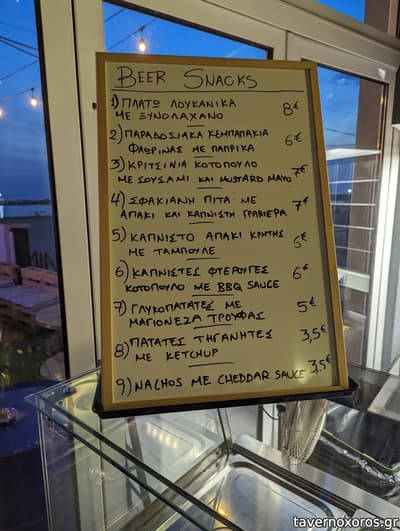 BEER SNACKS
1) ΠΛΑΤΩ ΛΟΥΚΑΝΙΚΑ
ΜΕ ΞΥΝΟΛΑΧΑΝΟ 8€
2) ΠΑΡΑΔΟΣΙΑΚΑ ΚΕΜΠΑΠΑΚΙΑ
ΦΛΩΡΙΝΑΣ ΜΕ ΠΑΠΡΙΚΑ 6€
3) ΚΡΙΤΣΙΝΙΑ ΚΟΤΟΠΟΥΛΟ
ΜΕ ΣΟΥΣΑΜΙ ΚΑΙ MUSTARD MAYO 7€
4) ΣΦΑΚΙΑΝΗ ΠΙΤΑ ΜΕ
ΑΠΑΚΙ ΚΑΙ ΚΑΠΝΙΣΤΗ ΓΡΑΒΙΕΡΑ 7€
5) ΚΑΠΝΙΣΤΟ ΑΠΑΚΙ ΚΡΗΤΗΣ
ΜΕ ΤΑΜΠΟΥΛΕ 6€
6) ΚΑΠΝΙΣΤΕΣ ΦΤΕΡΟΥΓΕΣ
ΚΟΤΟΠΟΥΛΟ ΜΕ BBQ SAUCE 6€
7) ΓΛΥΚΟΠΑΤΑΤΕΣ ΜΕ
ΜΑΓΙΟΝΕΖΑ ΤΡΟΥΦΑΣ 5€
8) ΠΑΤΑΤΕΣ ΤΗΓΑΝΗΤΕΣ
ΜΕ KETCHUP 3,5€
9) NACHOS ΜΕ CHEDDAR SAUCE 3,5€
tavernoxoros.gr